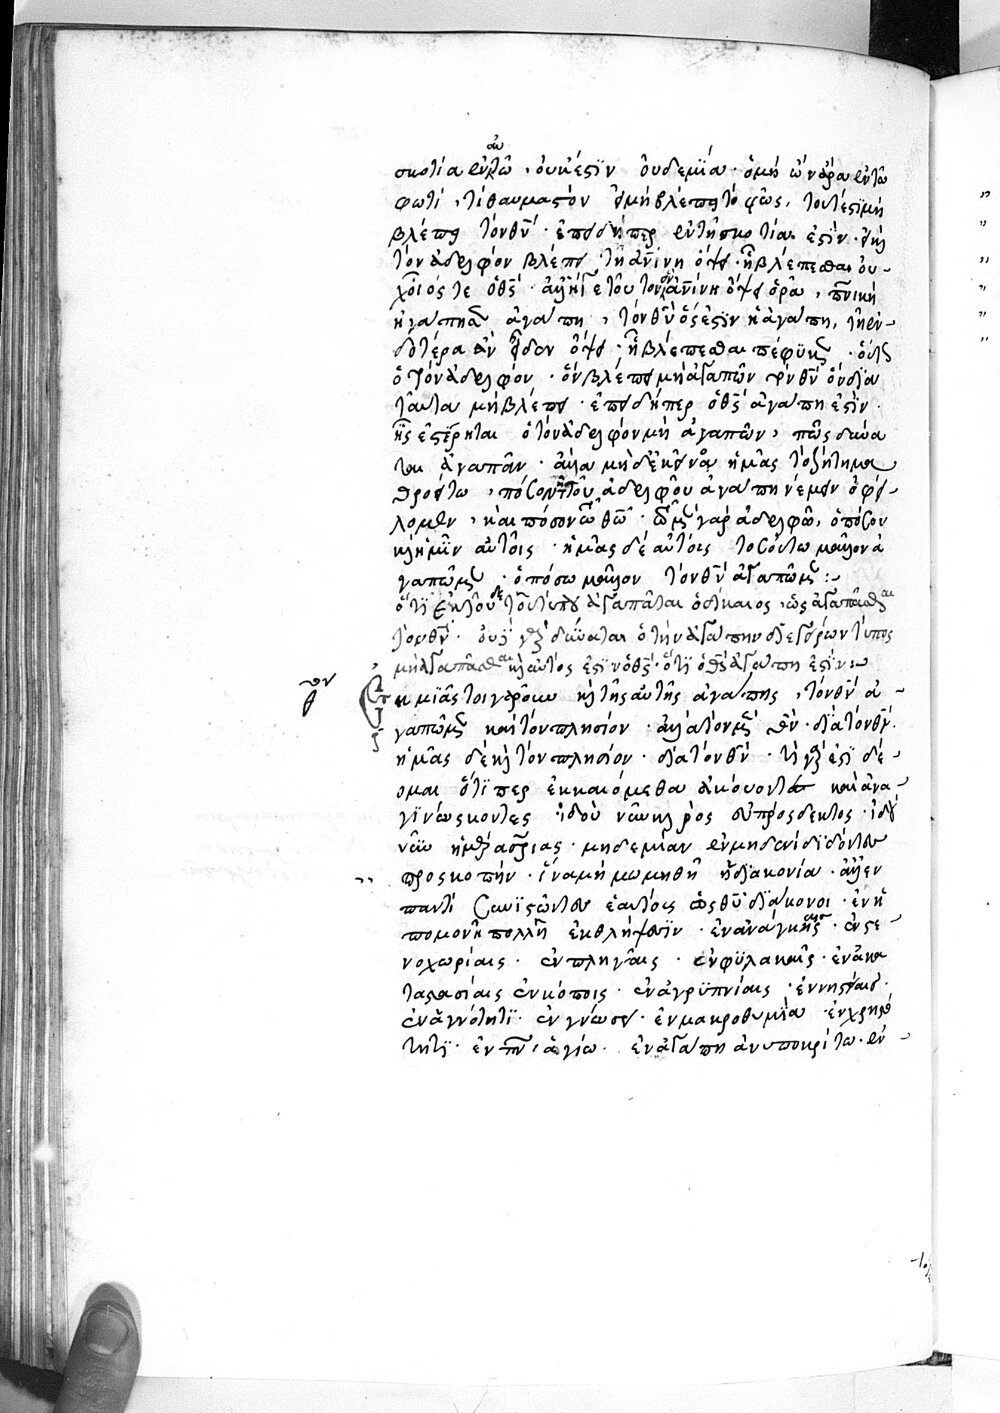 σκοτία ἐν αὐτῷ, οὐκ ἔστιν οὐδεμία· ὁ μὴ ὢν ἄρα ἐν τῷ
φωτὶ, τί θαυμαστὸν εἰ μὴ βλέπει τὸ φῶς, τουτέστι μὴ
βλέπει τὸν θν̄· ἐπειδήπερ ἐν τῇ σκοτίᾳ ἐστίν·
τὸν ἀδελφὸν βλέπει τῇ ἀνίνῃ ὄψει· ᾗ βλέπεσθαι οὐ
χ οἷός τε ὁ θς̄· ἀλλ' εἰ τοῦτον ὃν ἀνίνῃ ὄψει ὁρᾷ, πνικῇ
ἠγάπησεν ἀγάπῃ, τὸν θν̄ ὅς ἐστιν ἡ ἀγάπη, τῇ ἐν
δοτέρᾳ ἂν εἶδεν ὄψει· ᾗ βλέπεσθαι πέφυκε·
ὁ τὸν ἀδελφὸν· ὃν βλέπει μὴ ἀγαπῶν τὸν θν̄ ὃν διὰ
ταῦτα μὴ βλέπει· ἐπειδήπερ ὁ θς̄ ἀγάπη ἐστὶν·
ἧς ἐστέρηται ὁ τὸν ἀδελφὸν μὴ ἀγαπῶν, πῶς δύνα
ται ἀγαπᾶν· ἀλλὰ μηδ' ἐκεῖνο ἡμᾶς τὸ ζήτημα
θροείτω, πόσον τοῦ ἀδελφοῦ ἀγάπη νέμειν ὀφεί
λομεν, καὶ πόσον τῷ θῷ· γὰρ ἀδελφῷ, ὁπόσον
καὶ ἡμῖν αὐτοῖς· ἡμᾶς δὲ αὐτοὺς τοσούτῳ μᾶλλον ἀ
γαπῶμεν· ὁπόσῳ μᾶλλον τὸν θν̄ ἀγαπῶμεν:
ὅτι ἐκ τοῦδε τοῦ τύπου ἀγαπᾶται ὁ δίκαιος, ὡς ἀγαπᾶσθαι
τὸν θν̄· οὐ γὰρ δύναται ὁ τὴν ἀγάπην τύπος
μὴ ἀγαπᾶσθαι καὶ αὐτός ἐστιν ὁ θς̄· ὅτι ὁ θς̄ ἀγάπη ἐστίν:
Ἐκ μιᾶς τοιγαροῦν καὶ τῆς αὐτῆς ἀγάπης, τὸν θν̄ ἀ
γαπῶμεν καὶ τὸν πλησίον· ἀλλὰ τὸν μὲν θν̄· διὰ τὸν θν̄·
ἡμᾶς δὲ καὶ τὸν πλησίον· διὰ τὸν θν̄· τί γάρ ἐστι δέ
ομαι ὅτι περ ἐκκαιόμεθα ἀκούοντες καὶ ἀνα
γινώσκοντες ἰδοὺ νῦν καιρὸς εὐπρόσδεκτος· ἰδοὺ
νῦν ἡμέρα σριας· μηδεμίαν ἐν μηδενὶ διδόντων
προσκοπὴν· ἵνα μὴ μωμηθῇ ἡ διακονία· ἀλλ' ἐν
παντὶ συνιστῶντων ἑαυτοὺς ὡς θῦ διάκονοι· ἐν ὑ
πομονῇ πολλῇ ἐν θλίψεσιν· ἐν ἀνάγκαις· ἐν στε
νοχωρίαις· ἐν πληγαῖς· ἐν φυλακαῖς· ἐν ἀκα
ταστασίαις ἐν κόποις· ἐν ἀγρυπνίαις· ἐν νηστείαις·
ἐν ἁγνότητι· ἐν γνώσει· ἐν μακροθυμίᾳ· ἐν χρηστό
τητι· ἐν πνι ἁγίῳ· ἐν ἀγάπῃ ἀνυποκρίτῳ· ἐν